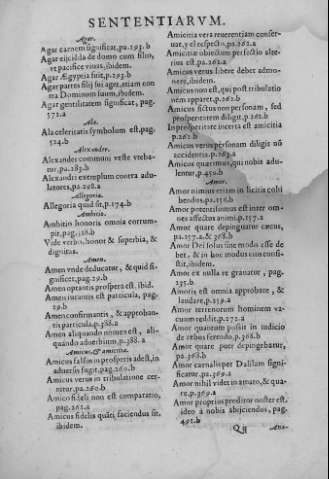 SENTENTIARVM.
Agar.
Agar carnem significat, pa.293.b
Agar eijcida de domo cum filio,
re pacifice viuas, ibidem.
Agar Ægypsia fuit, p.293.b
Agar partes filij sui aget, etiam con
tra Dominum suum, ibidem.
Agar gentilitatem significat, pag.
572.a
Ala.
Ala celeritatis symbolum est, pag.
524.b
Alexander.
Alexander communi veste vteba-
tur, pa.283.b
Alexandri exemplum contra adu-
latores, pa.298.a
Allegoria.
Allegoria quid sit, p.174.b
Ambitio.
Ambitio honoris omnia corrum-
pit, pag.
Vide verbo, honor & superbia, &
dignitas.
Amen.
Amen vnde deducatur, & quid si-
gnificet, pag.29.b
Amen optantis prospera est, ibid.
Amen iurantis est particula, pag.
29.b
Amen confirmantis, & approban-
tis particula, p.388.a
Amen aliquando nomen est, ali-
quando aduerbium, p.388.a
Amicus, & amicitia.
Amicus falsus in prosperis adest, in
aduersis fugit, pag.260.b
Amicus verus in tribulatione cer-
nitur, pa.260.b
Amico fideli non est comparatio,
pag.261.a
Amicus fidelis quãti faciendus sit,
ibidem.
Amicitia vera reuerentiam conser-
uat, y el respecto, pa.262.a
Amicitiæ obiectum perfectio alte-
rius est, pa.262.a
Amicus verus libere debet admo-
nere, ibidem.
Amicus non est, qui post tribulatio
nem apparet, p.262.b
Amicus fictus non personam, sed
prosperitatem diligit, p.262.b
In prosperitate incerta est amicitia
p.262.b
Amicus verus personam diligit nõ
accidentia, p.263.a
Amicus quærimus, qui nobis adu-
lentur, p.450.b
Amor.
Amor nimius etiam in licitis cohi
bendus, pa.156.b
Amor potentissimus est inter om-
nes affectus animi, p.157.a
Amor quare depinguatur cæcus,
pa.157.a. & 368.b
Amor Dei solus sine modo esse de
bet, & in hoc modus eius consi-
stit, ibidem.
Amor ex nulla re grauatur, pag.
235.b
Amoris est omnia approbare, &
laudare, p.239.a
Amor terrenorum hominem va-
cuum reddit, p.272.a
Amor quantum possit in iudicio
de rebus ferendo, p.368.b
Amor quare puer depingebatur,
pa.368.b
Amor carnalis per Dalilam signi-
ficatur, pa.369.a
Amor nihil videt in amato, & qua-
re, p.369.a
Amor proprius proditor noster est,
ideo à nobis abijciendus, pag.
492.b